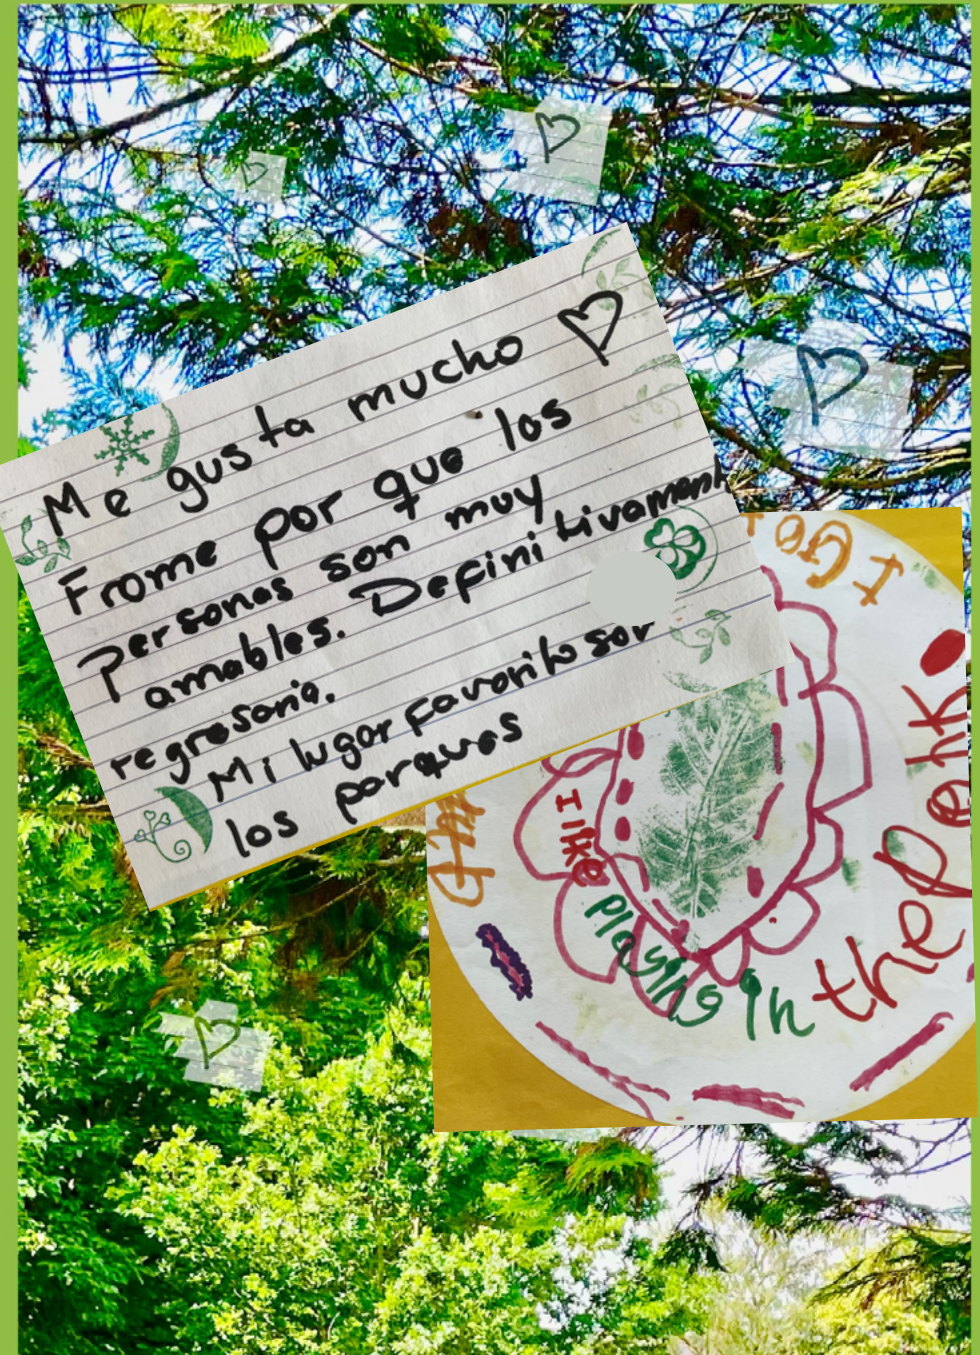 Me gusta mucho
Frome por que los
personas son muy
amables. Definitivament
regresaria.
Mi lugar favorito son
los parques
I Go
I like
playing in
the